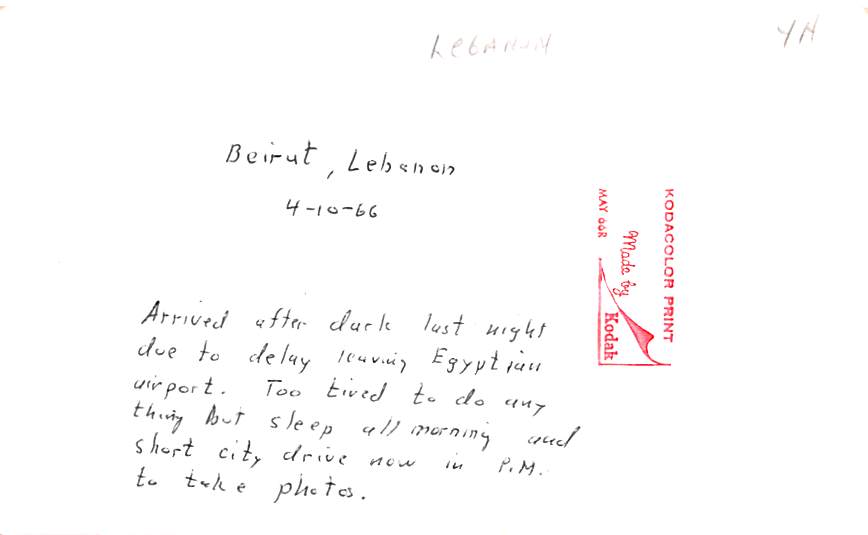 LEBANON
YH
Beirut, Lebanon
4-10-66
Arrived after dark last night
due to delay leaving Egyptian
airport. Too tired to do any
thing but sleep all morning and
short city drive now in P.M.
to take photos.
KODACOLOR PRINT
Made by
Kodak
MAY 66R